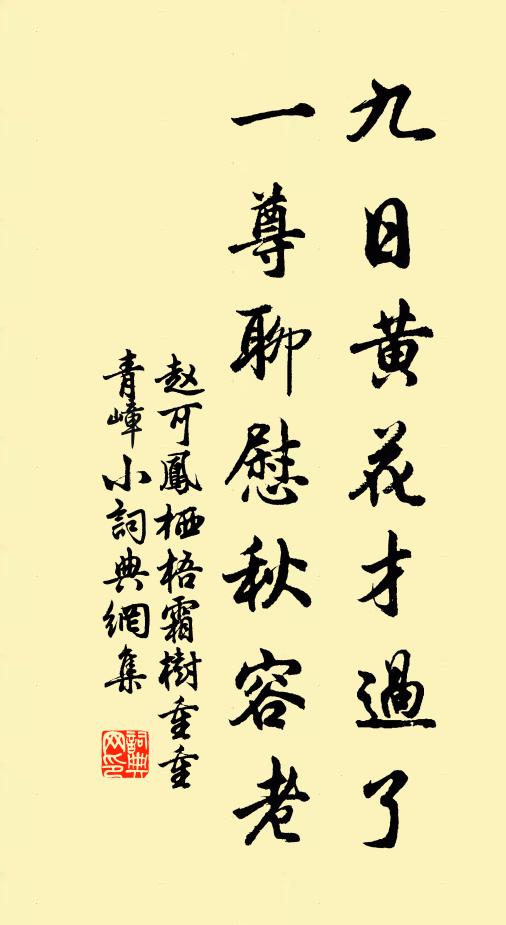 九日黄花才過了
一尊聊慰秋容老
赵可鳳栖梧霜樹重重
青嶂小詞典網集
詞典网印